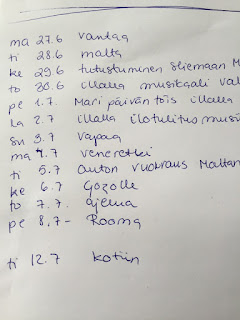 ma 27.6 vantaa
ti 28.6 malta
ke 29.6 tutustuminen sliemaan M
to 30.6 illalla musikaali val
pe 1.7. Mari päivän töis illalla
la 2.7 illalla ilotulitus musiik
su 3.7 vapaa
ma 4.7 veneretki
ti 5.7 auton vuokraus maltan
ke 6.7 Gozolle
to 7.7. ajelua
pe 8.7- Rooma
ti 12.7 kotiin